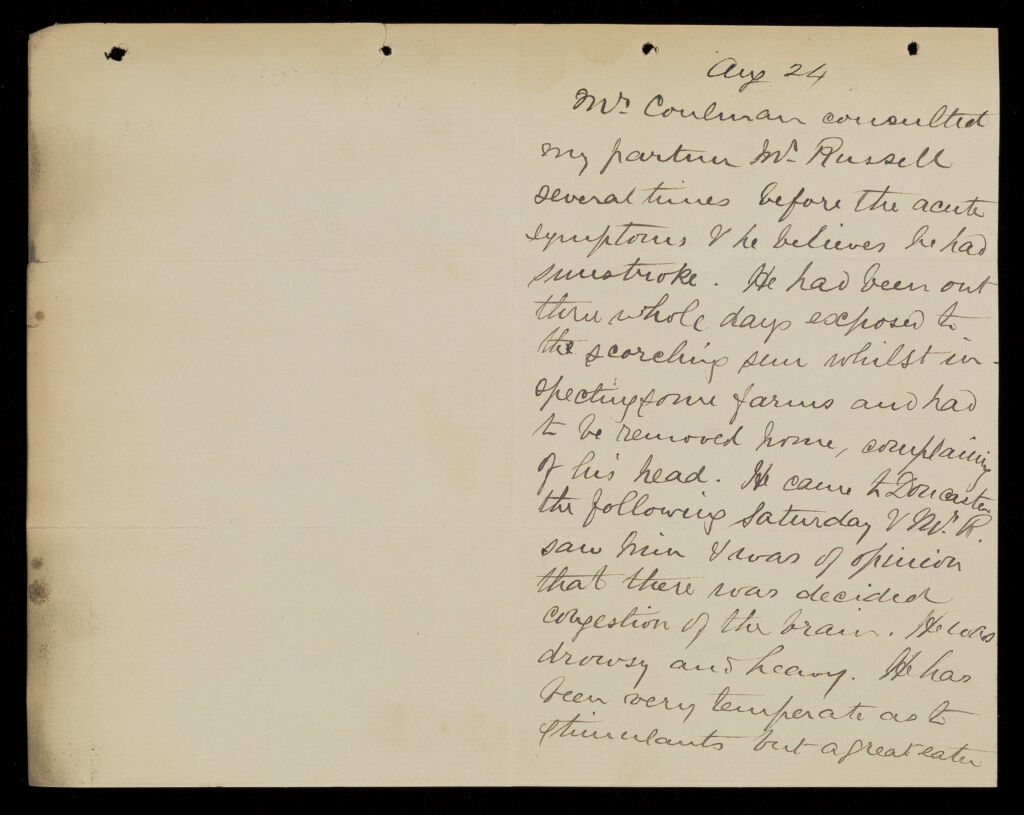 Aug 24
Mr. Coulman consulted
my partner Mr. Russell
several times before the acute
symptoms & he believes he had
sunstroke. He had been out
three whole days exposed to
the scorching sun whilst in-
specting some farms and had
to be removed home, complaining
of his head. He came to Doncaster
the following Saturday & Mr. R.
saw him & was of opinion
that there was decided
congestion of the brain. He was
drowsy and heavy. He has
been very temperate as to
stimulants but a great eater